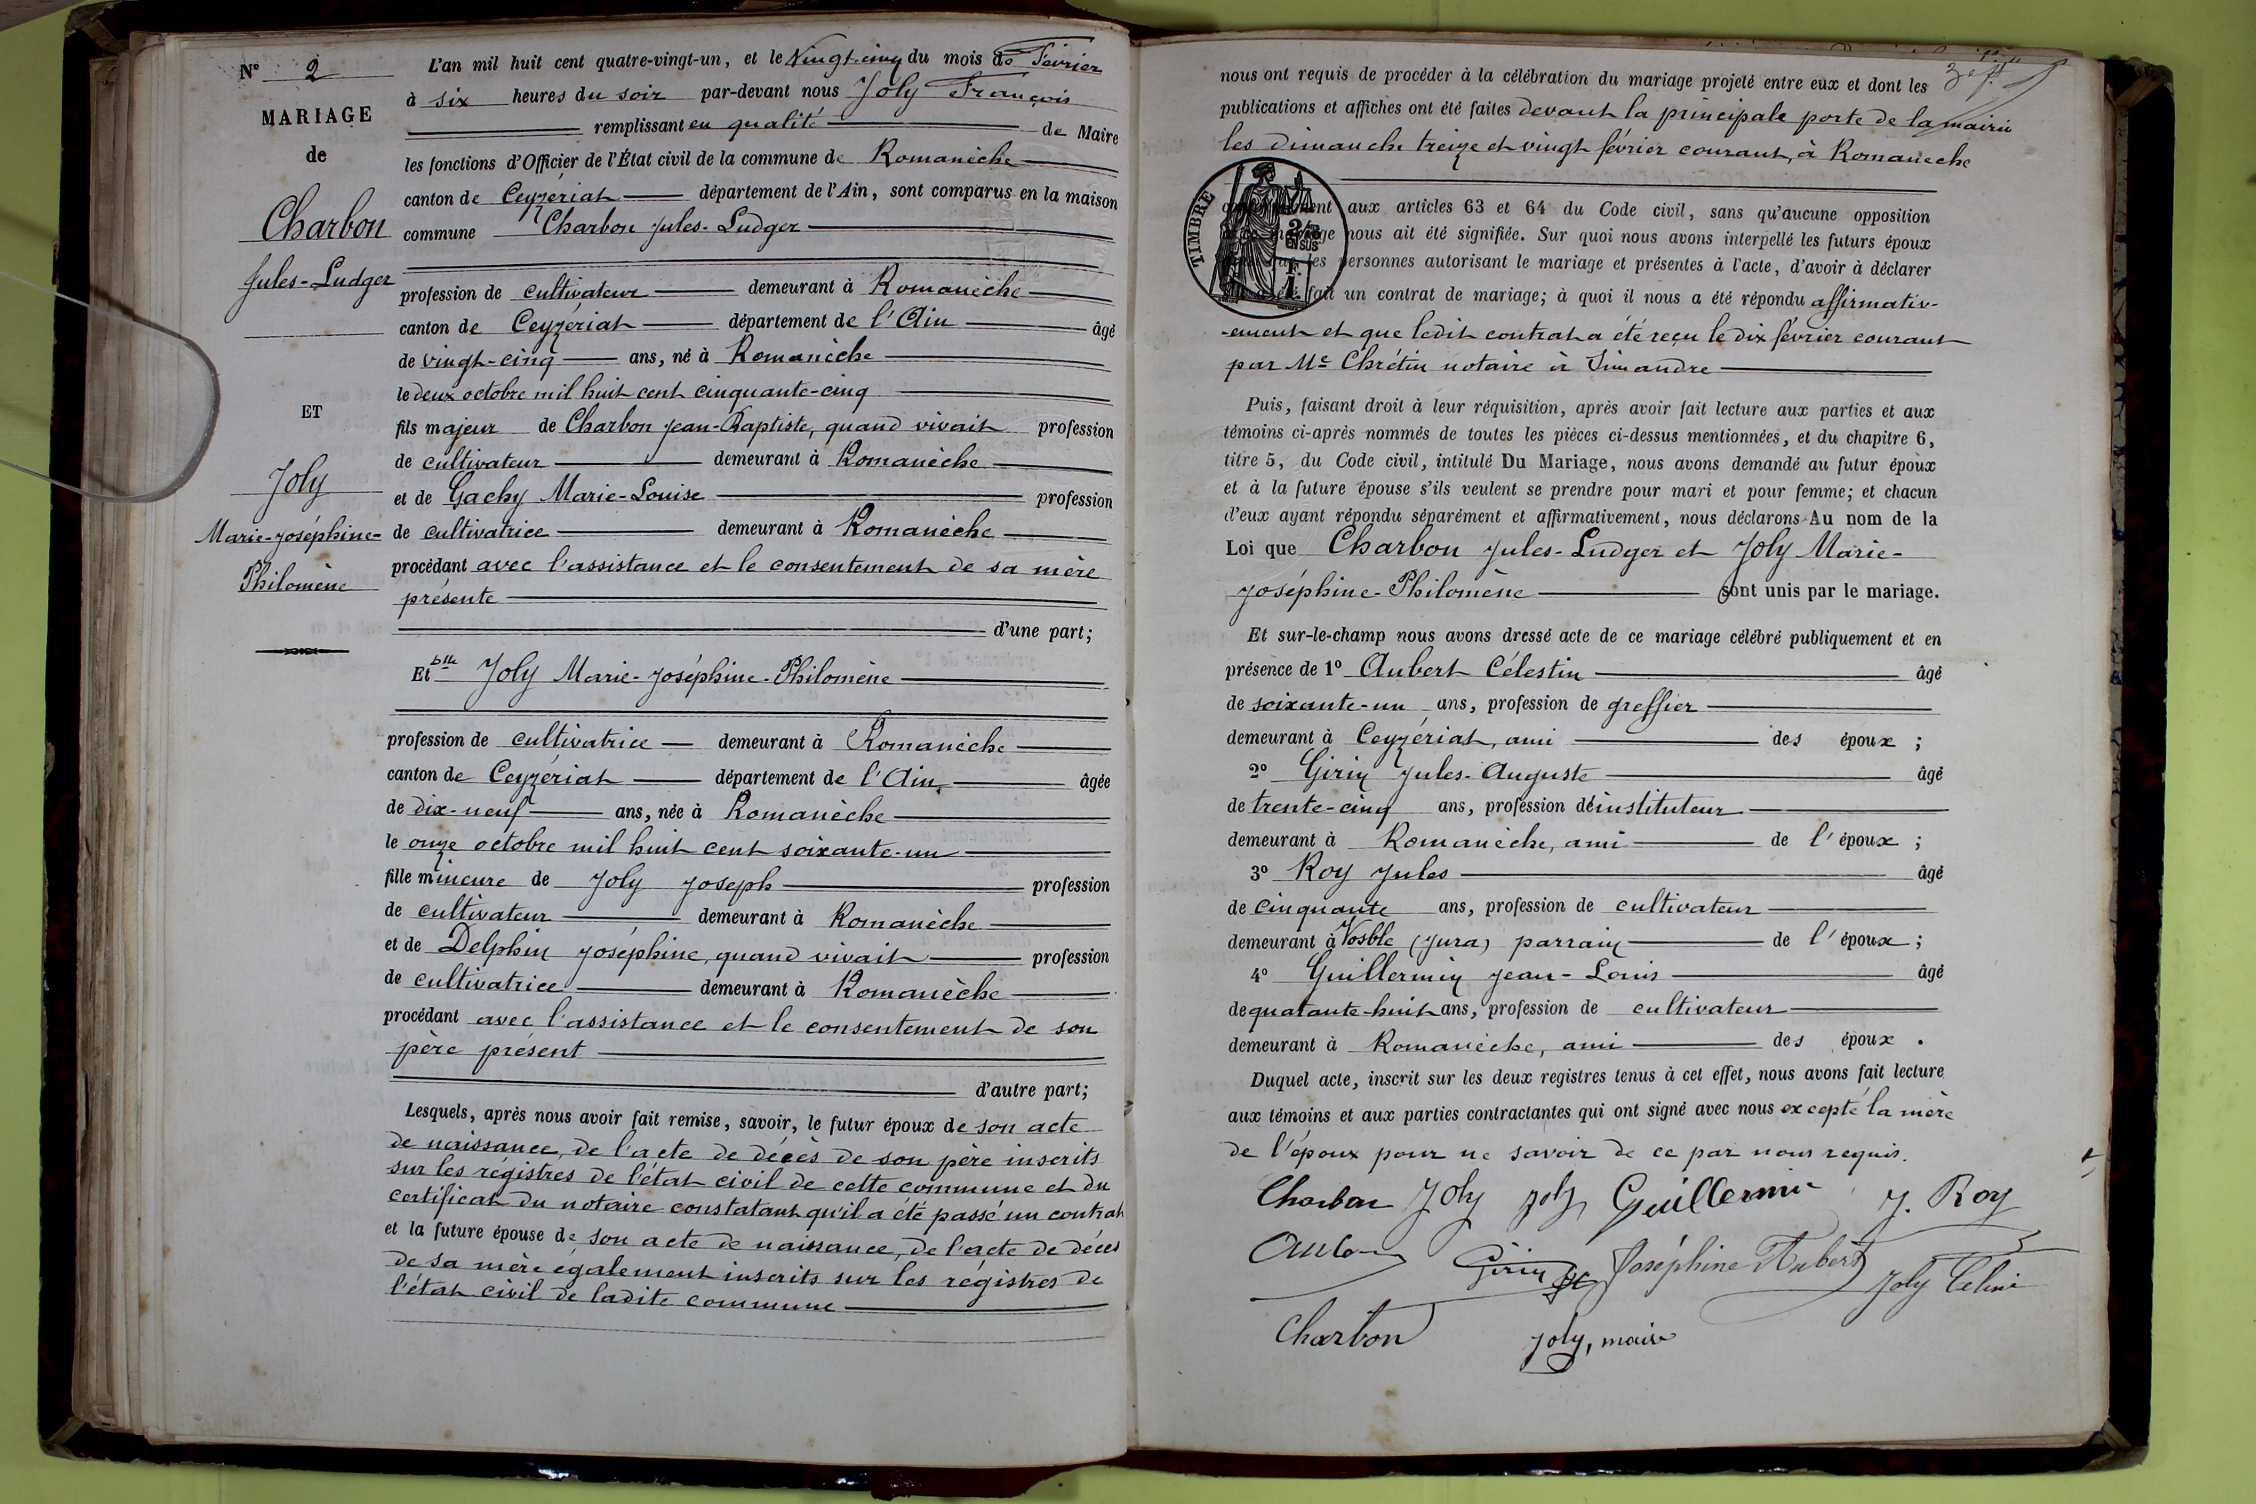 N° 2
MARIAGE
de
Charbon
Jules-Ludger
ET
Joly
Marie-Joséphine-
Philomène
L'an mil huit cent quatre-vingt-un, et le Vingt-cinq du mois de Février
à six heures du soir par-devant nous Joly François
remplissant en qualité de Maire
les fonctions d'Officier de l'État civil de la commune de Romanèche
canton de Ceyzériat département de l'Ain, sont comparus en la maison
commune Charbon Jules-Ludger
profession de cultivateur demeurant à Romanèche
canton de Ceyzériat département de l'Ain âgé
de vingt-cinq ans, né à Romanèche
le deux octobre mil huit cent cinquante-cinq
fils majeur de Charbon Jean-Baptiste, quand vivait profession
de cultivateur demeurant à Romanèche
et de Gachy Marie-Louise profession
de cultivatrice demeurant à Romanèche
procédant avec l'assistance et le consentement de sa mère
présente
d'une part;
Et Dlle Joly Marie-Joséphine-Philomène
profession de cultivatrice demeurant à Romanèche
canton de Ceyzériat département de l'Ain, âgée
de dix-neuf ans, née à Romanèche
le onze octobre mil huit cent soixante-un
fille mineure de Joly Joseph profession
de cultivateur demeurant à Romanèche
et de Delphin Joséphine, quand vivait profession
de cultivatrice demeurant à Romanèche
procédant avec l'assistance et le consentement de son
père présent
d'autre part;
Lesquels, après nous avoir fait remise, savoir, le futur époux de son acte
de naissance, de l'acte de décès de son père inscrits
sur les régistres de l'état civil de cette commune et du
certificat du notaire constatant qu'il a été passé un contrat
et la future épouse de son acte de naissance, de l'acte de décès
de sa mère également inscrits sur les régistres de
l'état civil de ladite commune
nous ont requis de procéder à la célébration du mariage projeté entre eux et dont les
publications et affiches ont été faites devant la principale porte de la mairie
les dimanche treize et vingt février courant, à Romanèche
TIMBRE
aux articles 63 et 64 du Code civil, sans qu'aucune opposition
nous ait été signifiée. Sur quoi nous avons interpellé les futurs époux
les personnes autorisant le mariage et présentes à l'acte, d'avoir à déclarer
fait un contrat de mariage; à quoi il nous a été répondu affirmativ-
-ement et que ledit contrat a été reçu le dix février courant
par Me Chrétin notaire à Simandre
Puis, faisant droit à leur réquisition, après avoir fait lecture aux parties et aux
témoins ci-après nommés de toutes les pièces ci-dessus mentionnées, et du chapitre 6,
titre 5, du Code civil, intitulé Du Mariage, nous avons demandé au futur époux
et à la future épouse s'ils veulent se prendre pour mari et pour femme; et chacun
d'eux ayant répondu séparément et affirmativement, nous déclarons Au nom de la
Loi que Charbon Jules-Ludger et Joly Marie-
Joséphine-Philomène sont unis par le mariage.
Et sur-le-champ nous avons dressé acte de ce mariage célébré publiquement et en
présence de 1° Aubert Célestin âgé
de soixante-un ans, profession de greffier
demeurant à Ceyzériat, ami des époux ;
2° Girin Jules-Auguste âgé
de trente-cinq ans, profession d'instituteur
demeurant à Romanèche, ami de l'époux ;
3° Roy Jules âgé
de cinquante ans, profession de cultivateur
demeurant à Vosble (Jura) parrain de l'époux ;
4° Guillermin Jean-Louis âgé
de quatante-huit ans, profession de cultivateur
demeurant à Romanèche, ami des époux .
Duquel acte, inscrit sur les deux registres tenus à cet effet, nous avons fait lecture
aux témoins et aux parties contractantes qui ont signé avec nous excepté la mère
de l'époux pour ne savoir de ce par nous requis.
Charbon Joly Joly Guillermin J. Roy
Girin Joséphine Aubert Joly Céline
Charbon Joly, maire